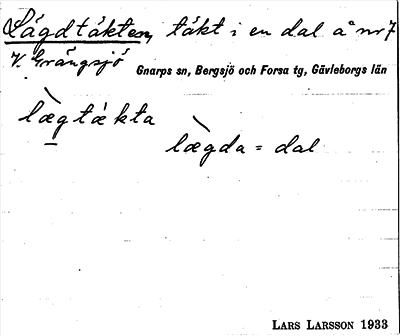 Lägdtäkten, täkt i en dal å nr 7
V. Grängsjö
Gnarps sn, Bergsjö och Forsa tg, Gävleborgs län
læ̀gtǽkta
læ̀gda = dal
LARS LARSSON 1933